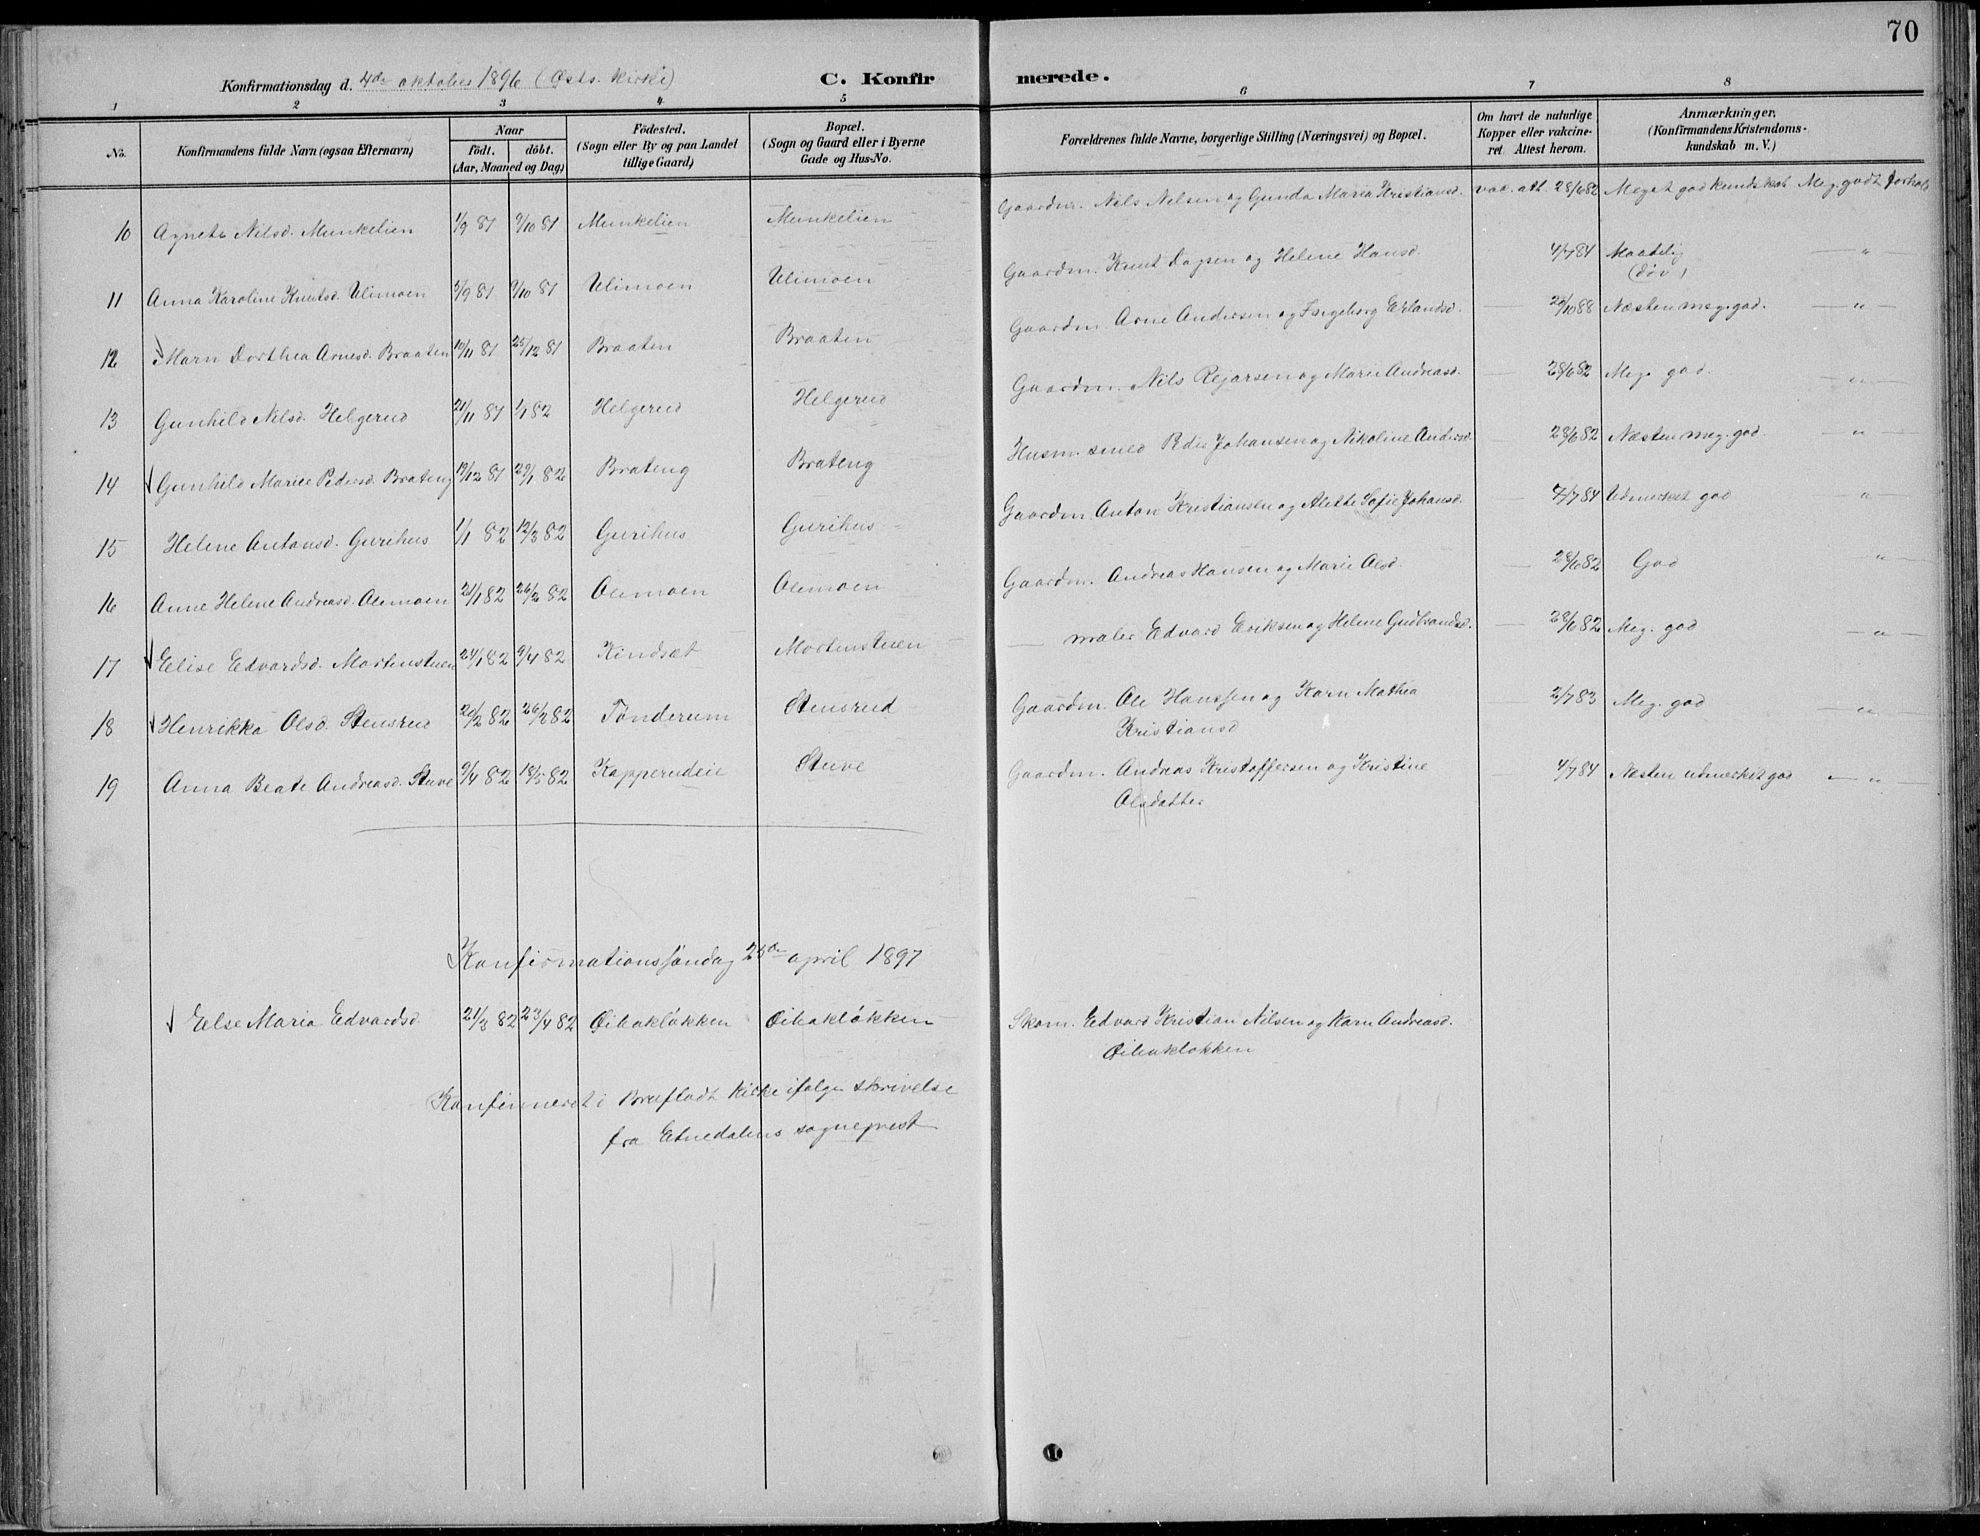 70
Konfirmationsdag d. 4de oktober 1896 (Østs. kirke) C. Konfirmerede.
1 2 3 4 5 6 7 8
No. Konfirmandens fulde Navn (ogsaa Efternavn) Naar født. døbt. (Aar, Maaned og Dag) Födested. (Sogn eller By og paa Landet tillige Gaard) Bopæl. (Sogn og Gaard eller i Byerne Gade og Hus-No. Forældrenes fulde Navne, borgerlige Stilling (Næringsvei) og Bopæl. Om havt de naturlige Kopper eller vakcineret. Attest herom. Anmærkninger. (Konfirmandens Kristendomskundskab m. V.)
10 Agnete Nilsd. Munkelien 1/9 81 9/10 81 Munkelien Munkelien Gaardm. Nils Nelsen og Gunda Maria Kristiansd. vac. att. 28/6 82 Meget god kundskab Meg. godt forhold
11 Anna Karoline Knutsd. Ulimoen 5/9 81 9/10 81 Ulimoen Ulimoen Gaardm. Knut Dagsen og Helene Hansd. — 4/7 84 Maadelig (døv) — " —
12 Marn Dorthea Arnesd. Braaten 10/11 81 25/12 81 Braaten Braaten Gaardm. Arne Andersen og Ingeborg Erlandsd. — /10 88 Næsten meg. god. — " —
13 Gunhild Nilsd. Helgerud 21/11 81 1/1 82 Helgerud Helgerud Gaardm. Nils Rejersen og Marie Andreasd. — 28/6 82 Meg. god. — " —
14 Gunhild Marie Pedersd. Brateng 19/12 81 29/1 82 Brateng Brateng Husm. smed Peder Johansen og Nikoline Andersd. — 28/6 82 Næsten meg. god. — " —
15 Helene Antonsd. Gurihus 1/1 82 12/3 82 Gurihus Gurihus Gaardm. Anton Kristiansen og Alette Sofie Johansd. — 4/7 84 Udmerket god " —
16 Anne Helene Andreasd. Olemoen 21/1 82 26/2 82 Olemoen Olemoen Gaardm. Andreas Hansen og Marie Olsd. — 28/6 82 God " —
17 Elise Edvardsd. Mortenstuen 24/1 82 9/4 82 Kindsæt Mortenstuen — maler Edvard Eriksen og Helene Gudbrandsd. — 28/6 82 Meg. god — " —
18 Henrikka Olsd. Stensrud 20/2 82 26/3 82 Tønderum Stensrud Gaardm. Ole Hanssen og Karn Mathea Kristiansd — 2/7 83 Meg. god — " —
19 Anna Beate Andreasd. Stuve 9/4 82 18/5 82 Kapperudeie Stuve Gaardm. Andreas Kristoffersen og Kristine Olsdatter — 4/7 84 Næsten udmerket god — " —
Konfirmationssøndag 25de april 1897
Else Maria Edvardsd. 21/3 82 23/4 82 Øibakløkken Øibakløkken Skom. Edvard Kristian Nilsen og Karn Andreasd. Øibakløkken
Konfirmeret i Brufladt kirke ifølge skrivelse
fra Etnedalens sogneprest